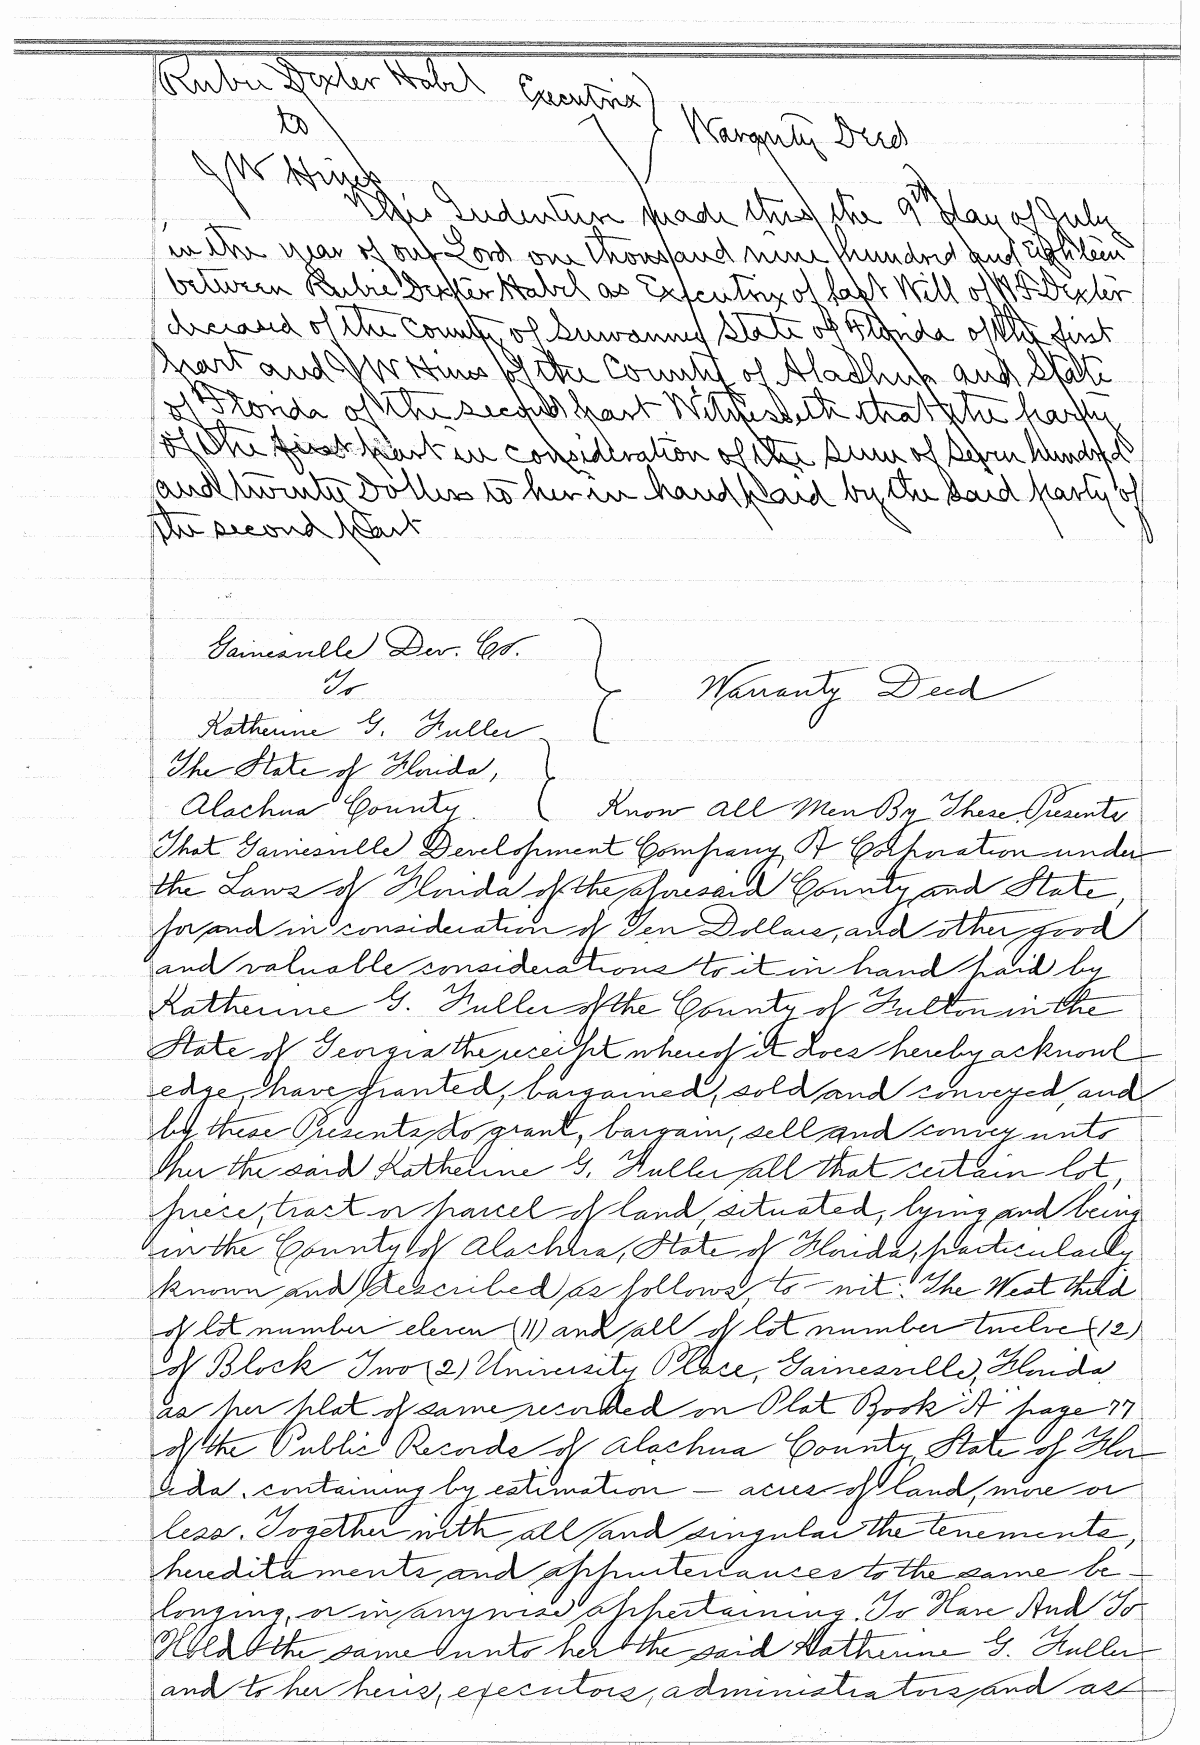 Rubie Dexter Habel Executrix
to
Warranty Deed
J W Hines
This Indenture made this the 9th day of July
in the year of our Lord one thousand nine hundred and Eighteen
between Rubie Dexter Habel as Executrix of last Will of W F Dexter
deceased of the County of Suwannee State of Florida of the first
part and J W Hines of the County of Alachua and State
of Florida of the second part Witnesseth that the party
of the first part in consideration of the sum of Seven hundred
and twenty Dollars to her in hand paid by the said party of
the second part
Gainesville Dev. Co.
To
Warranty Deed
Katherine G. Fuller
The State of Florida,
Alachua County. Know All Men By These Presents
That Gainesville Development Company, A Corporation under
the Laws of Florida of the aforesaid County and State,
for and in consideration of Ten Dollars, and other good
and valuable considerations to it in hand paid by
Katherine G. Fuller of the County of Fulton in the
State of Georgia the receipt whereof it does hereby acknowl
edge, have granted, bargained, sold and conveyed, and
by these Presents, do grant, bargain, sell and convey unto
her the said Katherine G. Fuller all that certain lot,
piece, tract or parcel of land, situated, lying and being
in the County of Alachua, State of Florida, particularly
known and described as follows, to-wit: The West third
of lot number eleven (11) and all of lot number twelve (12)
of Block Two (2) University Place, Gainesville, Florida
as per plat of same recorded on Plat Book "A" page 77
of the Public Records of Alachua County, State of Flor
ida, containing by estimation — acres of land, more or
less. Together with all and singular the tenements,
hereditaments and appurtenances to the same be-
longing, or in anywise appertaining. To Have And To
Hold the same unto her the said Katherine G. Fuller
and to her heirs, executors, administrators, and as